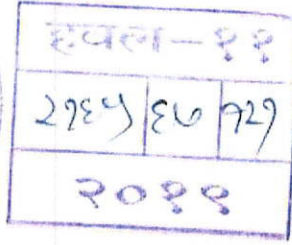 हवल-११
२१६५ ६७ १२१
२०१९